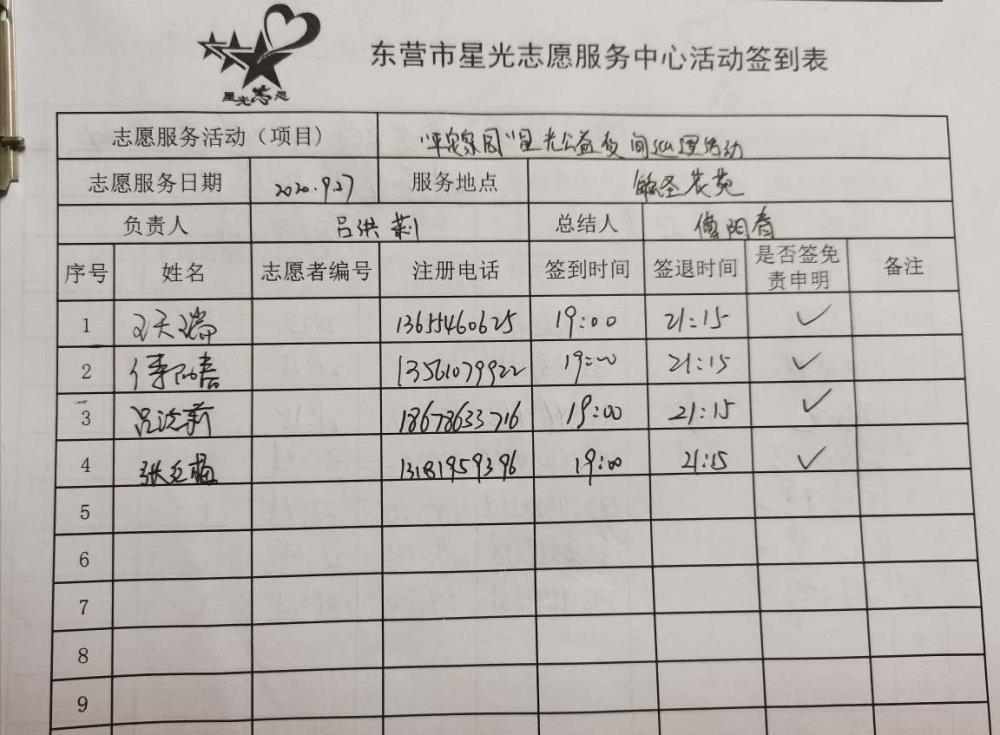 星光志愿
东营市星光志愿服务中心活动签到表
志愿服务活动（项目） "平安家园"星光公益夜间巡逻活动
志愿服务日期 2020.9.27 服务地点
负责人 吕洪莉 总结人 傅阳春
序号 姓名 志愿者编号 注册电话 签到时间 签退时间 是否签免责申明 备注
1 13655460625 19:00 21:15 ✓
2 13561079922 19:00 21:15 ✓
3 吕洪莉 18678633716 19:00 21:15 ✓
4 13181959396 19:00 21:15 ✓
5
6
7
8
9